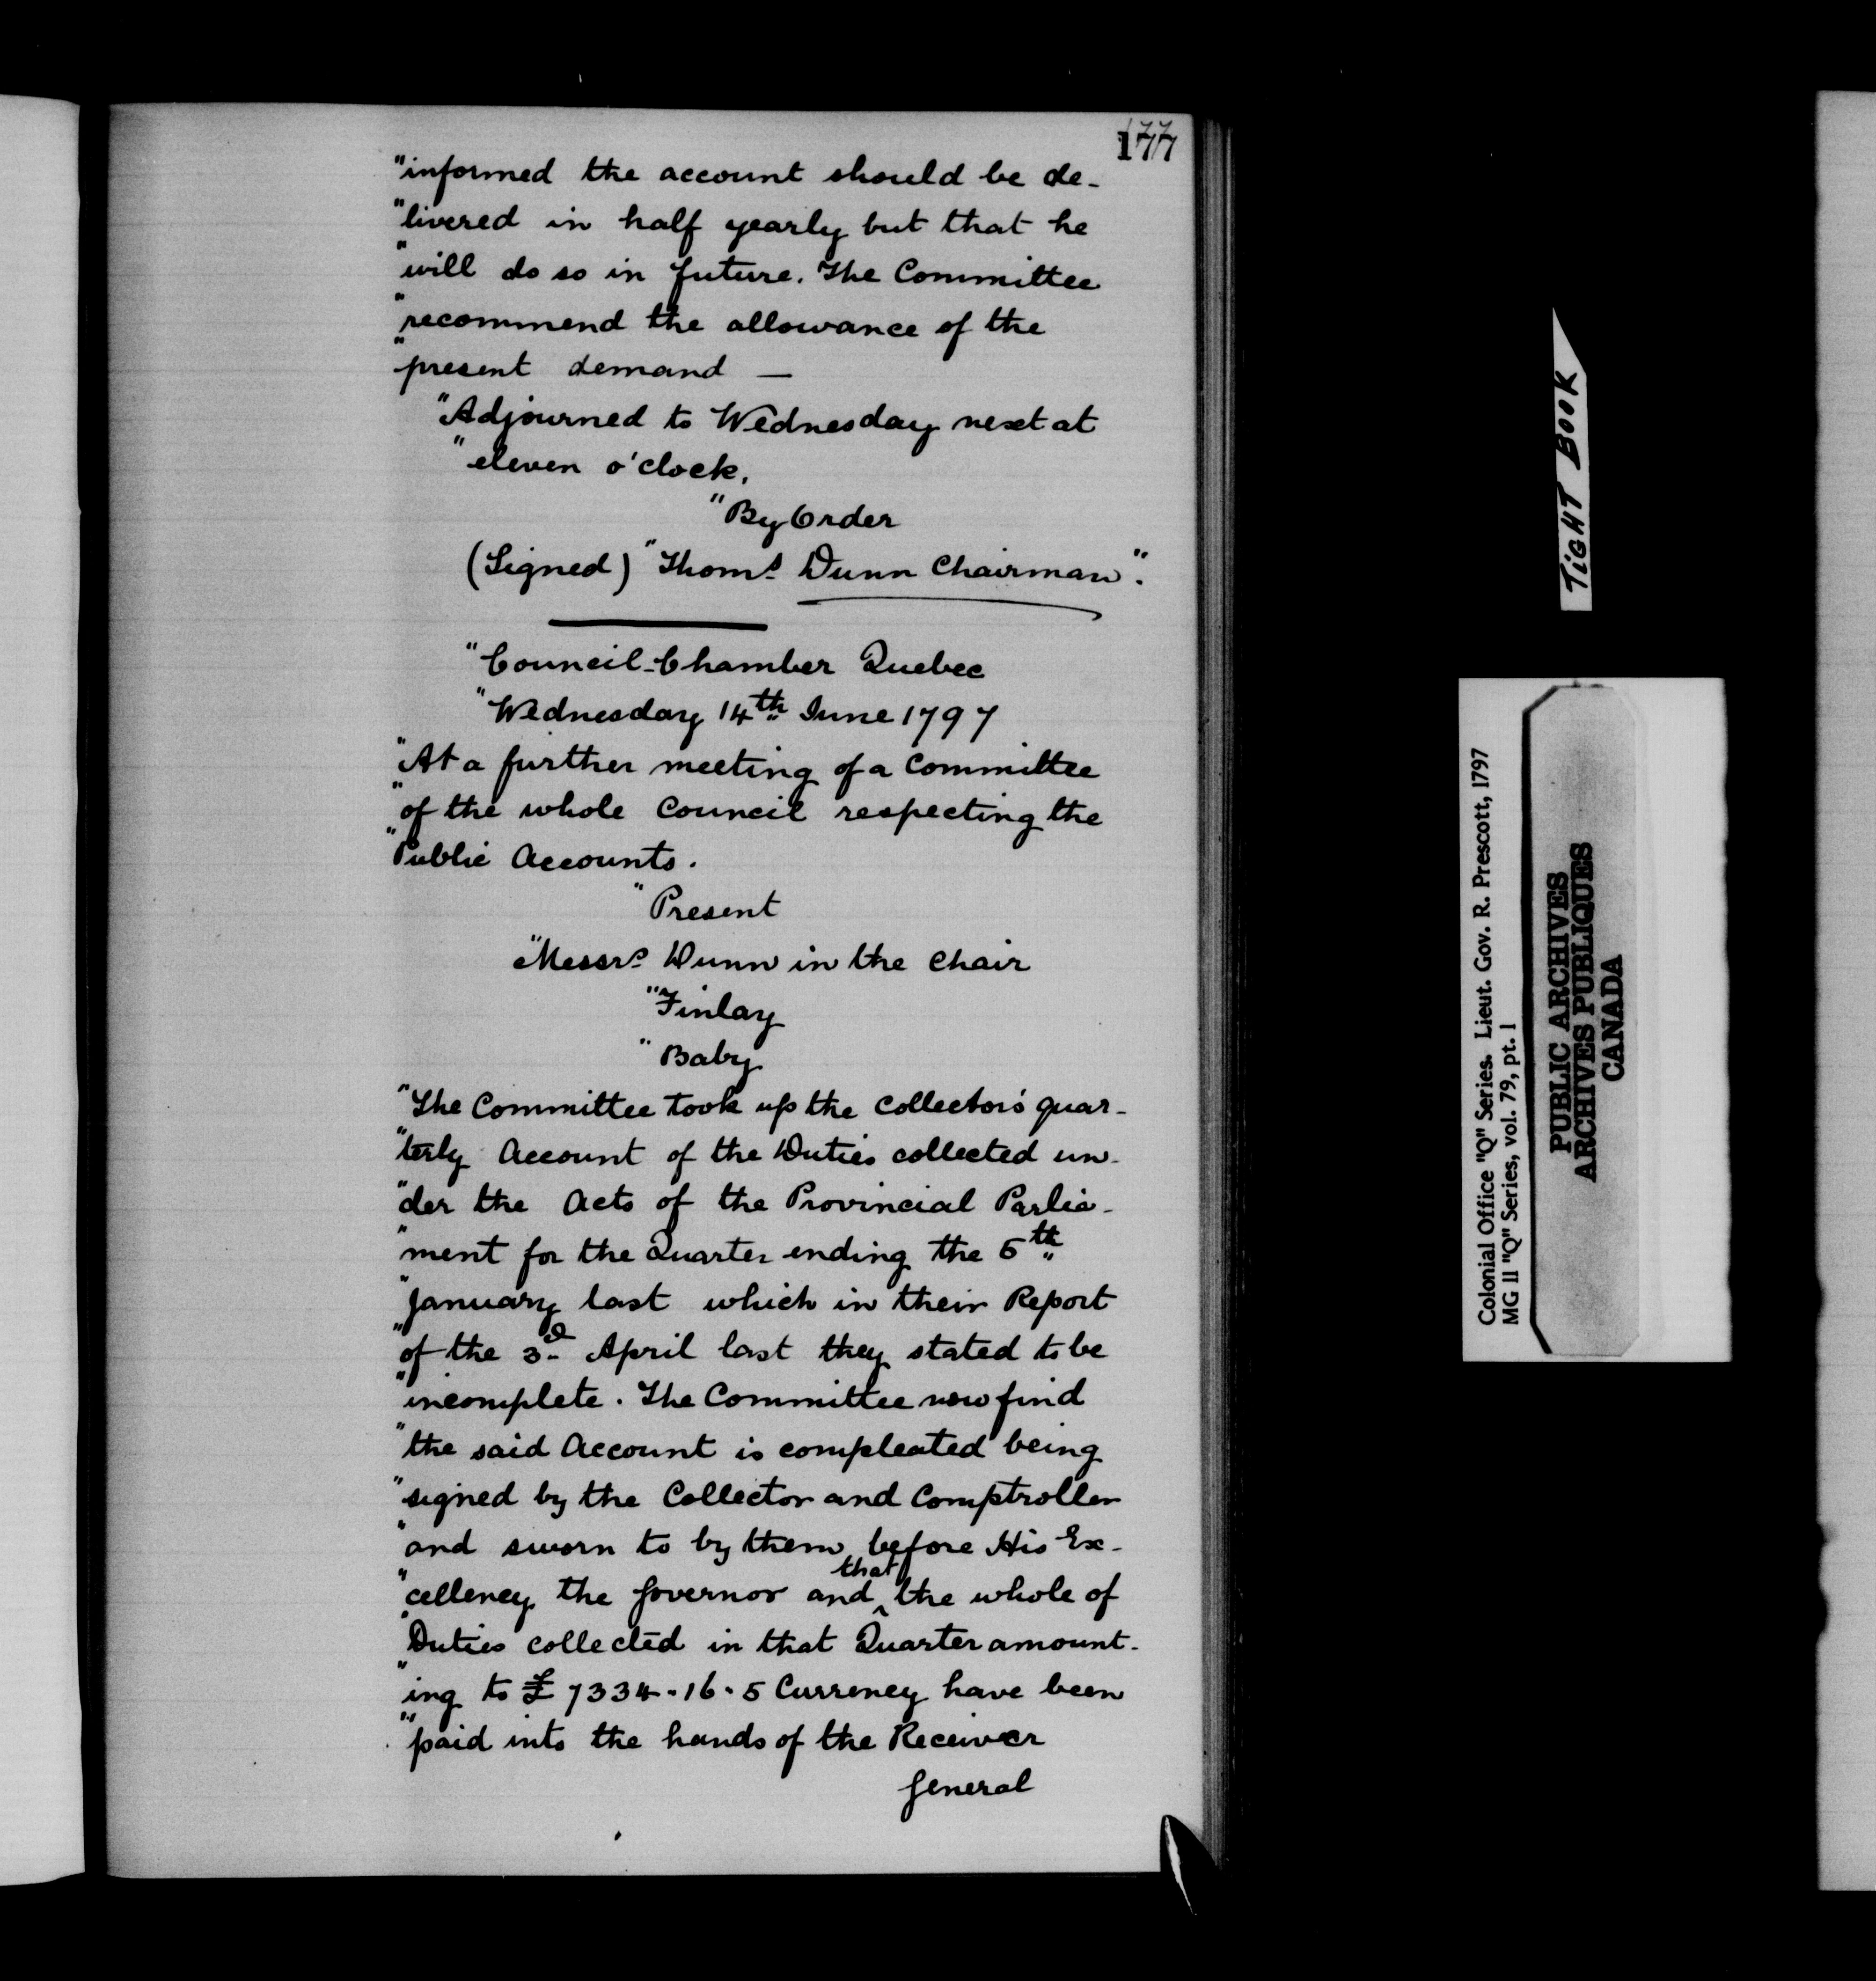 177
"informed the account should be de-
"livered in half yearly but that he
"will do so in future. The Committee
"recommend the allowance of the
"present demand —
"Adjourned to Wednesday next at
"eleven o'clock.
"By Order
(Signed) "Thoms. Dunn Chairman".
"Council-Chamber Quebec
"Wednesday 14th June 1797
"At a further meeting of a Committee
"of the whole Council respecting the
"Public Accounts.
"Present
"Messrs. Dunn in the Chair
"Finlay
"Baby
"The Committee took up the Collector's quar-
"terly Account of the Duties collected un-
"der the Acts of the Provincial Parlia-
"ment for the Quarter ending the 5th
"January last which in their Report
"of the 3d April last they stated to be
"incomplete. The Committee now find
"the said Account is compleated being
"signed by the Collector and Comptroller
"and sworn to by them before His Ex-
"cellency the Governor and that the whole of
"Duties collected in that Quarter amount-
"ing to £ 7334.16.5 Currency have been
"paid into the hands of the Receiver
General
TIGHT BOOK
Colonial Office "Q" Series. Lieut. Gov. R. Prescott, 1797
MG 11 "Q" Series, vol. 79, pt. 1
PUBLIC ARCHIVES
ARCHIVES PUBLIQUES
CANADA